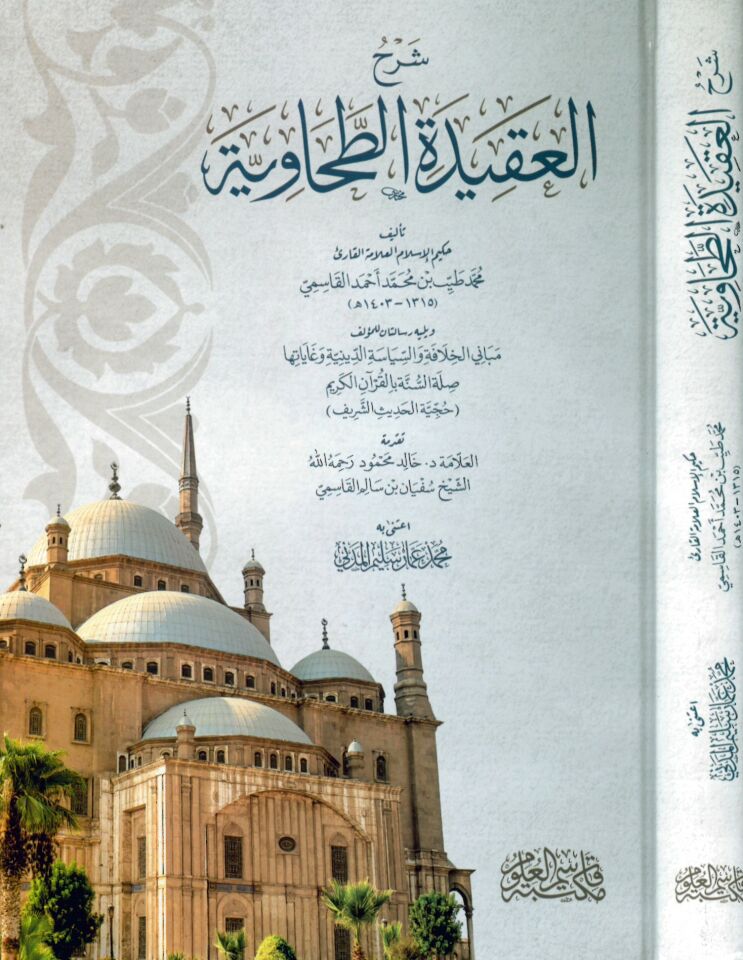 شَرْحُ
العَقِيدَةِ الطَّحَاوِيَّة
تأليف
حكيم الإسلام العلامة القارئ
مُحَمَّد طَيِّب بْن مُحَمَّد أَحْمَد القَاسِمِيّ
(١٣١٥ - ١٤٠٣هـ)
ويليه رسالتان للمؤلف
مَبَانِي الخِلَافَةِ وَالسِّيَاسَةِ الدِّينِيَّةِ وَغَايَاتِهَا
صِلَةُ السُّنَّةِ بِالقُرْآنِ الكَرِيمِ
(حُجِّيَّةُ الحَدِيثِ الشَّرِيفِ)
تقدمة
العَلَّامَة د. خَالِد مَحْمُود رَحِمَهُ اللهُ
الشَّيْخ سُفْيَان بْن سَالِم القَاسِمِيّ
اعتنى به
محمد عمار سليم المدني
مكتبة قاسم العلوم
شَرْحُ
العَقِيدَةِ الطَّحَاوِيَّة
حكيم الإسلام العلامة القارئ
مُحَمَّد طَيِّب بْن مُحَمَّد أَحْمَد القَاسِمِيّ
(١٣١٥ - ١٤٠٣هـ)
اعتنى به
محمد عمار سليم المدني
مكتبة قاسم العلوم